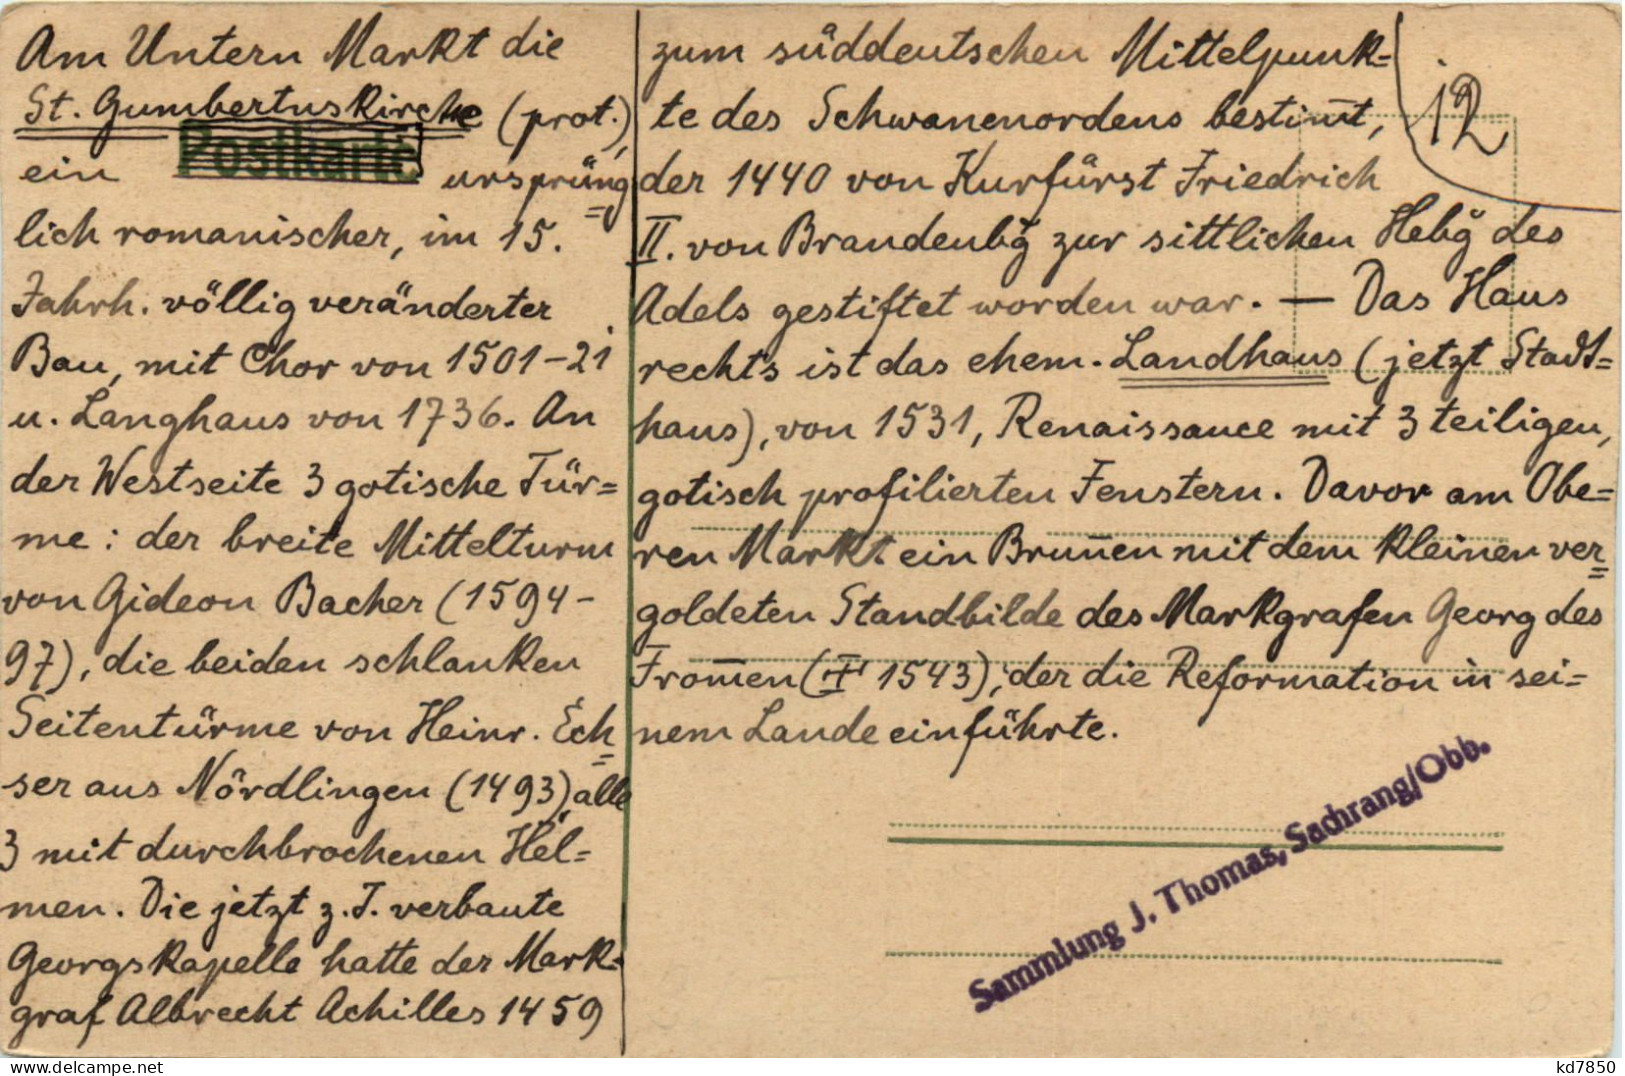 Am Untern Markt die
St. Gumbertuskirche (prot.),
Postkarte
ein ursprüng=
lich romanischer, im 15.
Jahrh. völlig veränderter
Bau, mit Chor von 1501-21
u. Langhaus von 1736. An
der Westseite 3 gotische Tür=
me: der breite Mittelturm
von Gideon Bacher (1594-
97), die beiden schlanken
Seitentürme von Heinr. Ech=
ser aus Nördlingen (1493), alle
3 mit durchbrochenen Hel=
men. Die jetzt z. T. verbaute
Georgskapelle hatte der Mark=
graf Albrecht Achilles 1459
12
zum süddeutschen Mittelpunk=
te des Schwanenordens bestim̅t,
der 1440 von Kurfürst Friedrich
II. von Brandenbg zur sittlichen Hebg des
Adels gestiftet worden war. — Das Haus
rechts ist das ehem. Landhaus (jetzt Stadt=
haus), von 1531, Renaissance mit 3 teiligen,
gotisch profilierten Fenstern. Davor am Obe=
ren Markt ein Brun̅en mit dem kleinen ver=
goldeten Standbilde des Markgrafen Georg des
From̅en († 1543), der die Reformation in sei=
nem Lande einführte.
Sammlung J. Thomas, Sachrang/Obb.
kd7850